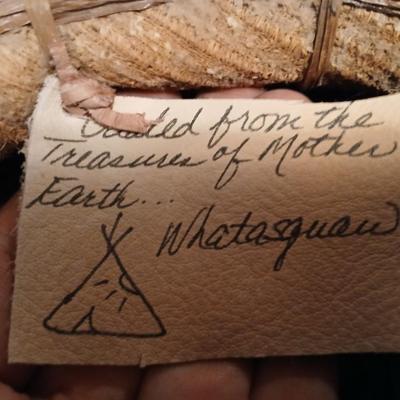 Created from the
Treasures of Mother
Earth...
Whatasquaw